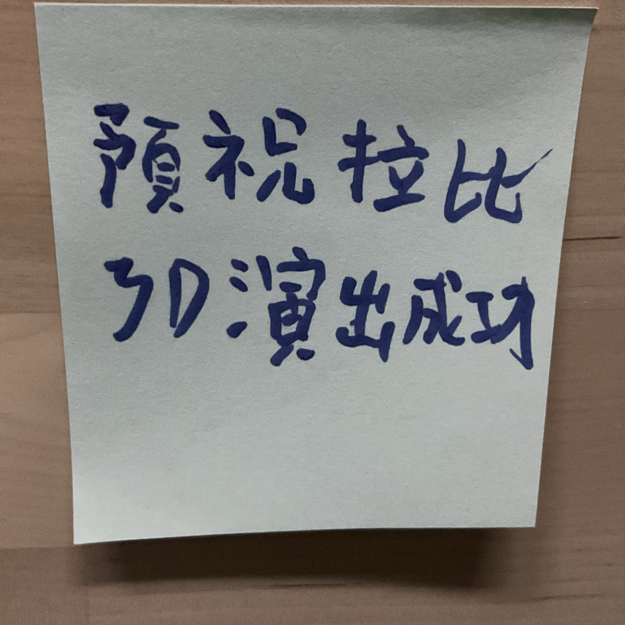 預祝拉比
3D演出成功